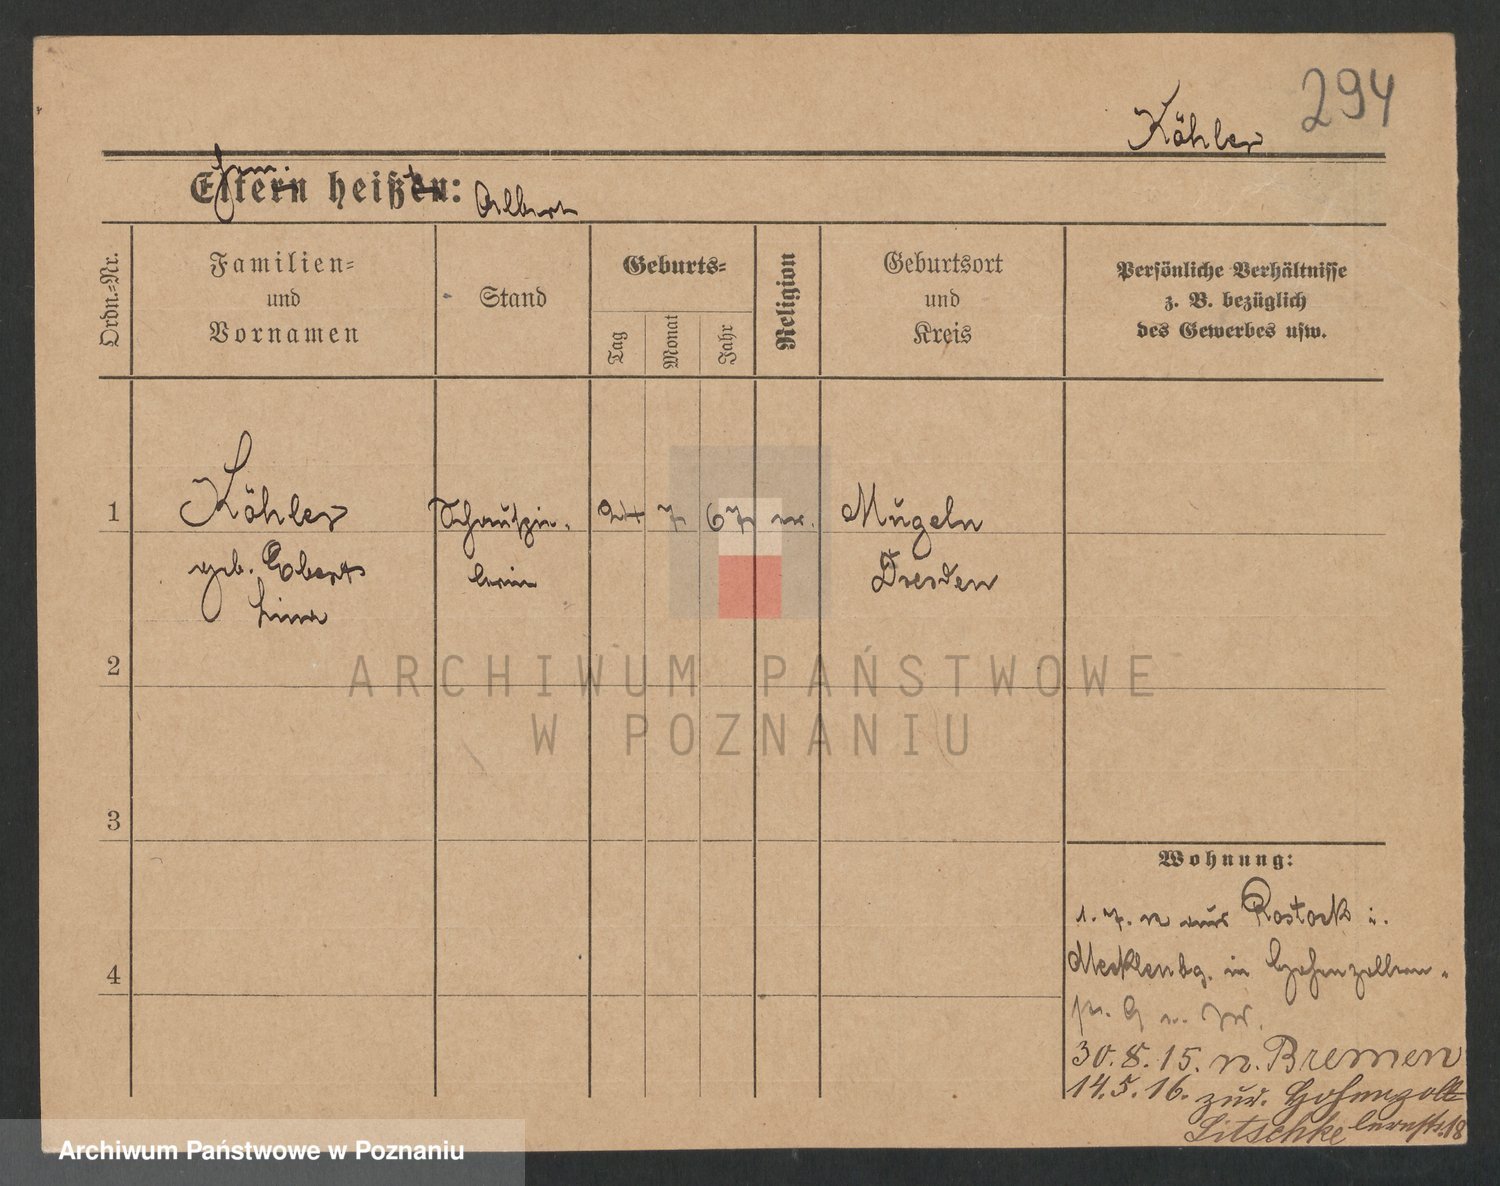 294
Köhler
Eltern heißen: Albert
Ordn.=Nr.
Familien=
und
Vornamen
Stand
Geburts=
Tag
Monat
Jahr
Religion
Geburtsort
und
Kreis
Persönliche Verhältnisse
z. B. bezüglich
des Gewerbes usw.
1
Köhler
geb. Ebert
Lina
Schauspie-
lerin
24 7. 67
Mügeln
Dresden
2
3
4
Wohnung:
1. 7. aus Rostock i.
Mecklenbg. in Hohenzollern-
30.8.15. n. Bremen
14.5.16. zur. Hohenzoll
lernstr. 18
Litschke
ARCHIWUM PAŃSTWOWE
W POZNANIU
Archiwum Państwowe w Poznaniu